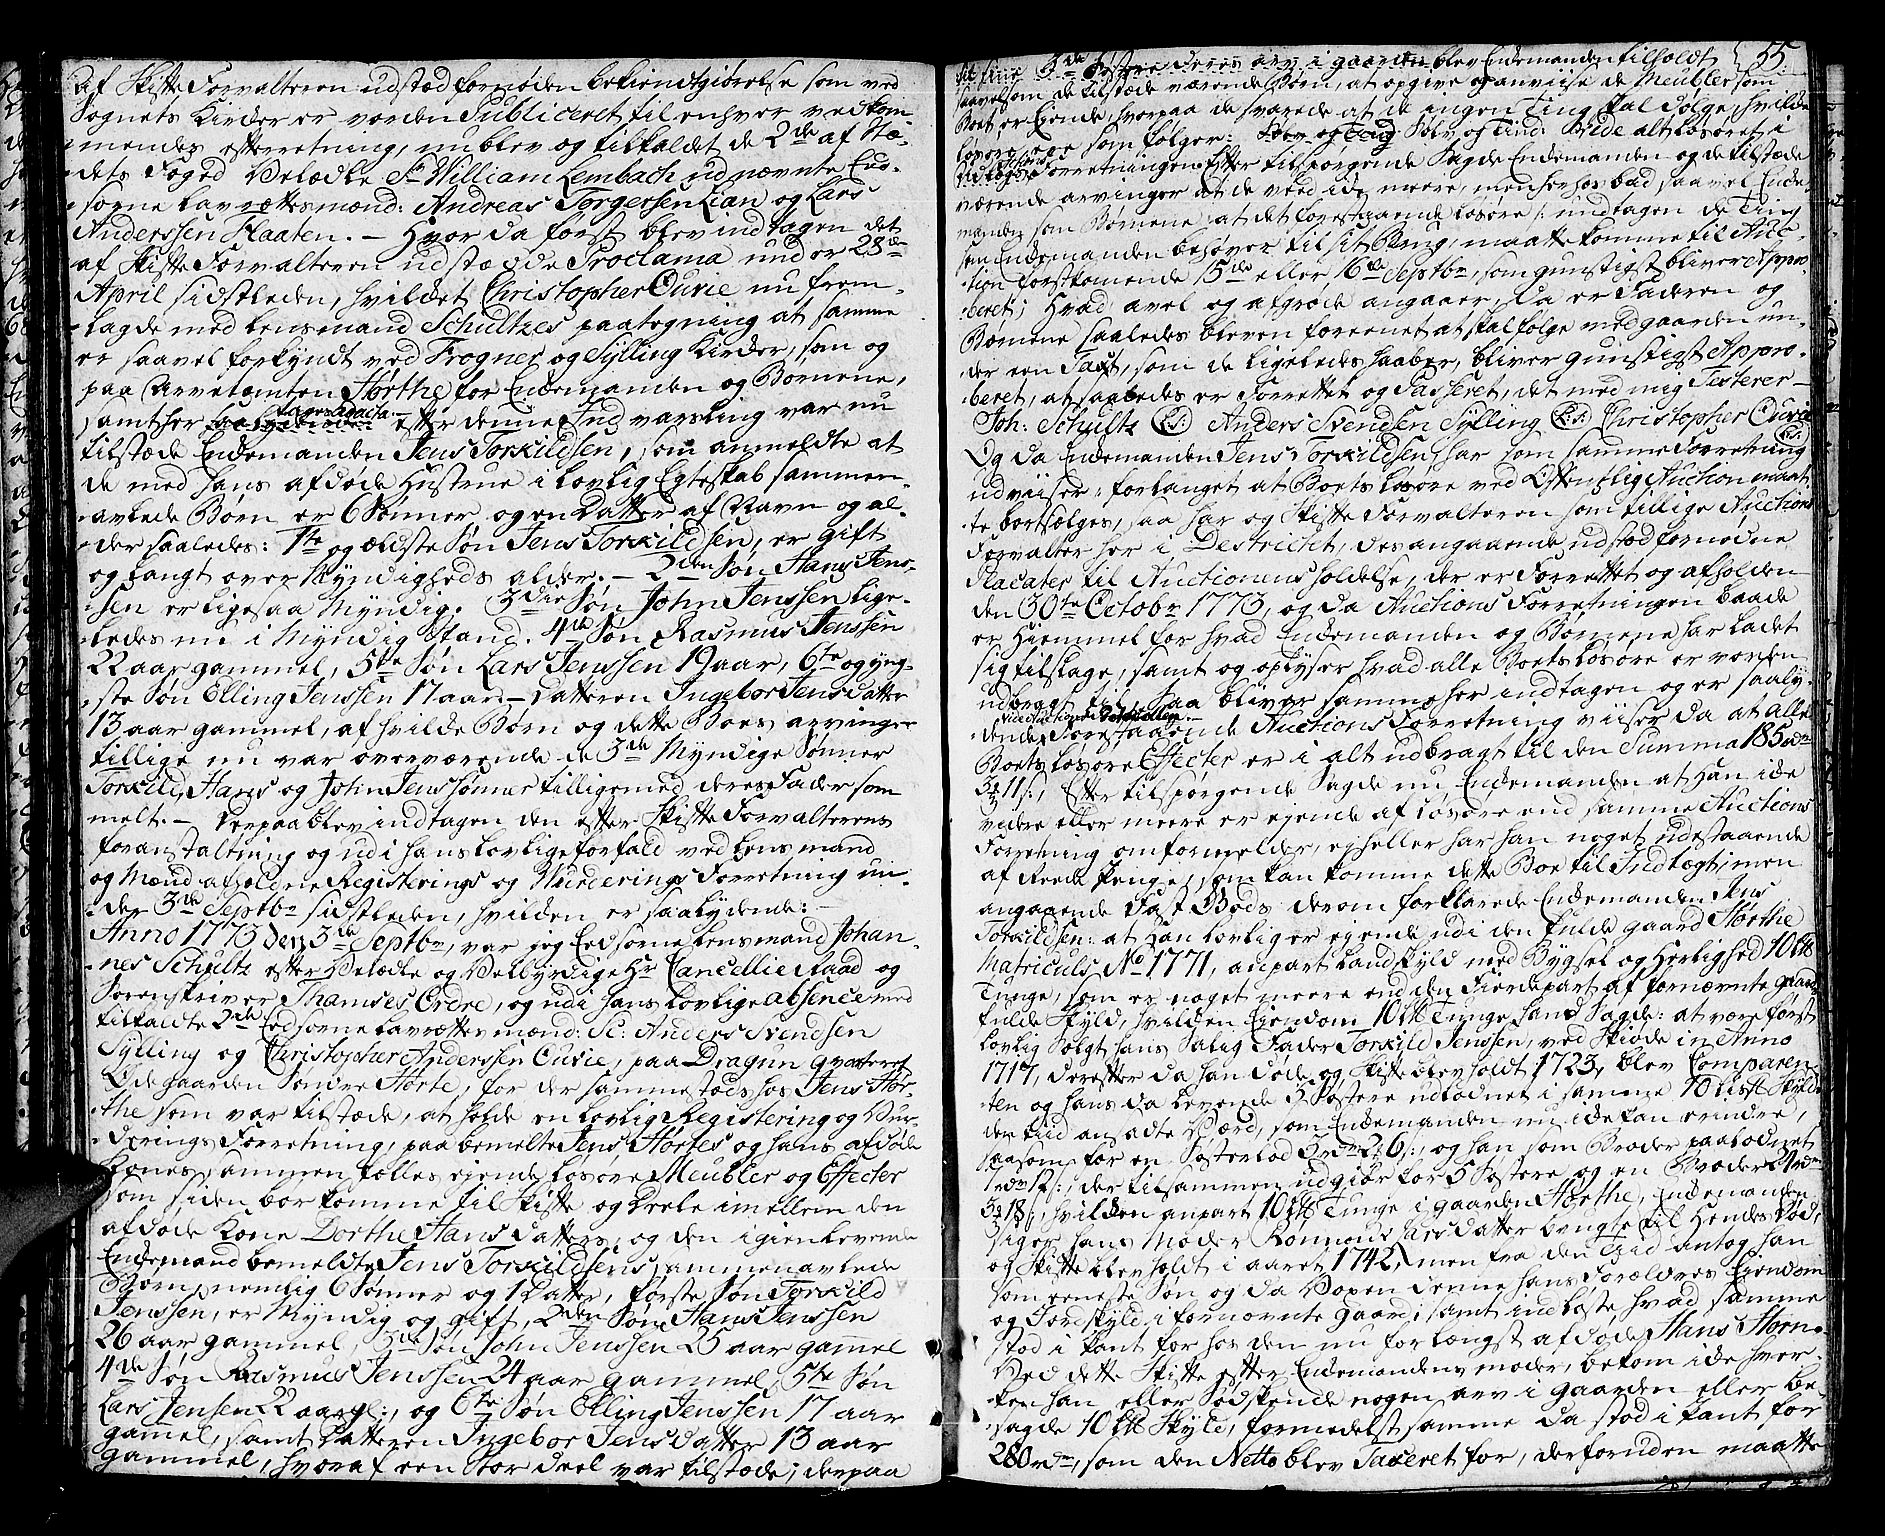 af Skifte Forvalteren udstæd fornøden bekiendtgiørelse som ved
Sognets Kirker er vorden Publiceret til enhver vedkom-
mendes efterretning, nu blev og tilkaldet de 2de af Stæ-
dets Foged Velædle Sr William Lembach udnævnte Eed-
sorne Lavrettesmænd: Andreas Torgersen Lian og Lars
Anderssen Haaten. - Hvor da først blev indtagen det
af Skifte Forvalteren udstædde Proclama under 28de
April sidstleden, hvilket Christopher Ourie nu frem-
lagde med Lensmand Schultzes paategning at samme
er saavel forkyndt ved Frogner og Sylling Kirker, som og
paa Arvetomten Hørthe for Enkemanden og Børnene,
samt her - efter denne Indvarsling var nu
tilstæde Enkemanden Jens Torkildsen, som anmeldte at
de med hans afdøde Hustrue i lovlig Egteskab sammen-
avlede Børn er 6 Sønner og en Datter af Navn og al-
der saaledes: 1te og ældste Søn Jens Torkildsen, er gift
og langt over Myndigheds alder. - 2den Søn Hans Jens-
sen er ligesaa Myndig. 3die Søn John Jenssen lige-
ledes nu i Myndig Stand. 4de Søn Rasmus Jenssen
22 aar gammel, 5te Søn Lars Jenssen 19 aar, 6te og yng-
ste Søn Elling Jenssen 17 aar - Datteren Ingebor Jensdatter
13 aar gammel, af hvilke Børn og dette Boes arvinger
tillige nu var overværende de 3de Myndige Sønner
Torkild, Hans og John Jenssønner tilligemed deres Fader som
melt. - Derpaa blev indtagen den efter Skifte Forvalterens
foranstaltning og udi hans lovlige forfald ved Lensmand
og Mænd afholdne Registerings og Wurderings Forretning un-
der 3de Septbr sidstleden, hvilken er saalydende: -
Anno 1773 den 3de Septbr, var jeg Eedsorne Lensmand Johan-
nes Schultz efter Velædle og Velbyrdige Hr Cancellie Raad og
Sorenskriver Thamses Ordre, og udi hans lovlige absence med
tilkaldte 2de Eedsorne Lavrettesmænd: Sc: Anders Svendsen
Sylling og Christopher Anderssen Ourie, paa Dragun Qvarteret
Ødegaarden Søndre Hørte, for der sammestæds hos Jens Hør-
the som var tilstæde, at holde en lovlig Registering og Vur-
derings Forretning, paa bemelte Jens Hørtes og hans afdøde
Kones sammen fælles ejende Løsøre Meubler og Effecter
som siden bør komme til Skifte og Deele imellem den
afdøde Kone Dorthe Hans datters, og den igienlevende
Enkemand bemeldte Jens Torkildsens sammenavlede
Børn, nemlig 6 Sønner og 1 Datter, første Søn Torkild
Jenssen, er Myndig og gift, 2den Søn Hans Jenssen
26 aar gammel, 3de Søn John Jenssen 25 aar gamel
4de Søn Rasmus Jenssen 24 aar gammel, 5te Søn
Lars Jensen 22 aar gl:, og 6te Søn Elling Jenssen 17 aar
gamel, samt Datteren Ingebor Jensdatter 13 aar
gammel, hvoraf een stor deel var tilstæde; derpaa
55
blev Enkemanden tilholdt
saavelsom de tilstæde værende Børn, at opgive og anviise de Meubler som
Boet er Eyende, hvorpaa de svarede at de ingen Ting skal dølge, hvilke
Løsøre er som følger: Sølv og Tind: Brede alt Løsøret i
Forretningen. Efter tilspørgende Sagde Enkemanden og de tilstæde
værende arvinger at de veed ide meere, men herhos bad saavel Enke-
manden som Børnene at det forestaaende Løsøre /: undtagen de Ting
som Enkemanden behøver til sit Brug, maatte komme til Auc-
tion førstkomende 15de eller 16de Septbr, som gunstigst bliver Appro-
beret; Hvad avel og afgrøde angaaer, da er Faderen og
Børnene saaledes bleven foreenet at skal følge med gaarden un-
der een Taxt, som de ligeledes haaber, bliver gunstigst Appro-
beret, at saaledes er Forrettet og Passeret, det med mig Testerer
Joh: Schultz (L.S:) Anders Svendsen Sylling (L:S:) Christopher Ourie
(L:S:)
Og da Enkemanden Jens Torkildsen har som samme Forretning
udviiser: forlanget at Boets Løsøre ved Offentlig Auction maat-
te bortsælges, saa har og Skifte Forvalteren som tillige Auctions
Forvalter her i Destrictet, desangaaende udstæd fornødne
Placater til Auctionens holdelse, der er Forrettet og afholden
den 30te Octobr 1773, og da Auctions Forretningen baade
er Hiemmel for hvad Enkemanden og Børnene har ladet
sig tilslage, samt og oplyser hvad alle Boets Løsøre er vorden
udbragt til, saa bliver samme her indtagen og er saaly-
dende: Forestaaende Auctions Forretning viiser da at alle
Boets Løsøre Effecter er i alt udbragt til den Summa 185 rdr
3 11 s:, Efter tilspørgende Sagde nu Enkemanden at Han ide
videre eller meere er ejende af Løsøre end samme Auctions
Forretning omformelder, ej heller har han noget udestaaende
af Reede Penge, som kan komme dette Boe til Indtægt; men
angaaende Fast Gods derom forklarede Enkemanden Jens
Torkildsen: at Han lovlig er ejende udi den fulde gaard Hørthe
Matriculs No 171, anpart Landskyld med Bygsel og Herlighed 10 Lb
Tunge, som er noget meere end den Fierdepart af fornævnte gaards
fulde Skyld, hvilken Ejendom 10 Lb Tunge Hand Sagde: at være først
lovlig Solgt hans Salig Fader Torkild Jenssen, ved Skiøde in Anno
1717, derefter da han døde og Skifte blev holdt 1723, blev Comparen-
ten og hans da levende 5 Søstere udlodnet i samme 10 Lb Skyld
den tiid ansadte Værd, som Enkemanden nu ide kan erindre,
saasom for en Søsterlod 3 rdr 2 6 s:, og han som Broder paalodnet
der tilsammen udgiør for 5 Søstere og en Broder 24 rdr
3 18 s:, hvilken anpart 10 Lb Tunge i gaarden Hørthe, Enkemanden
siger, hans Moder Ronnoue Lars datter brugte til Hendes død,
og Skifte blev holdt i aaret 1742, men fra den Tiid antog han
som eeneste Søn og da Voxen denne hans Forældres Ejendom
og Jordskyld i fornævnte gaard, samt indløste, hvad samme
stod i Pant for hos den nu forlængst afdøde Hans Hørn-
Ved dette Skifte efter Enkemandens moder, bekom ide hver-
ken han eller Sødskende nogen arv i gaarden eller be-
sagde 10 Lb Skyld, formedelst samme da stod i Pant for
280 rdr, som den Netto blev Taxeret for, derforuden maatte